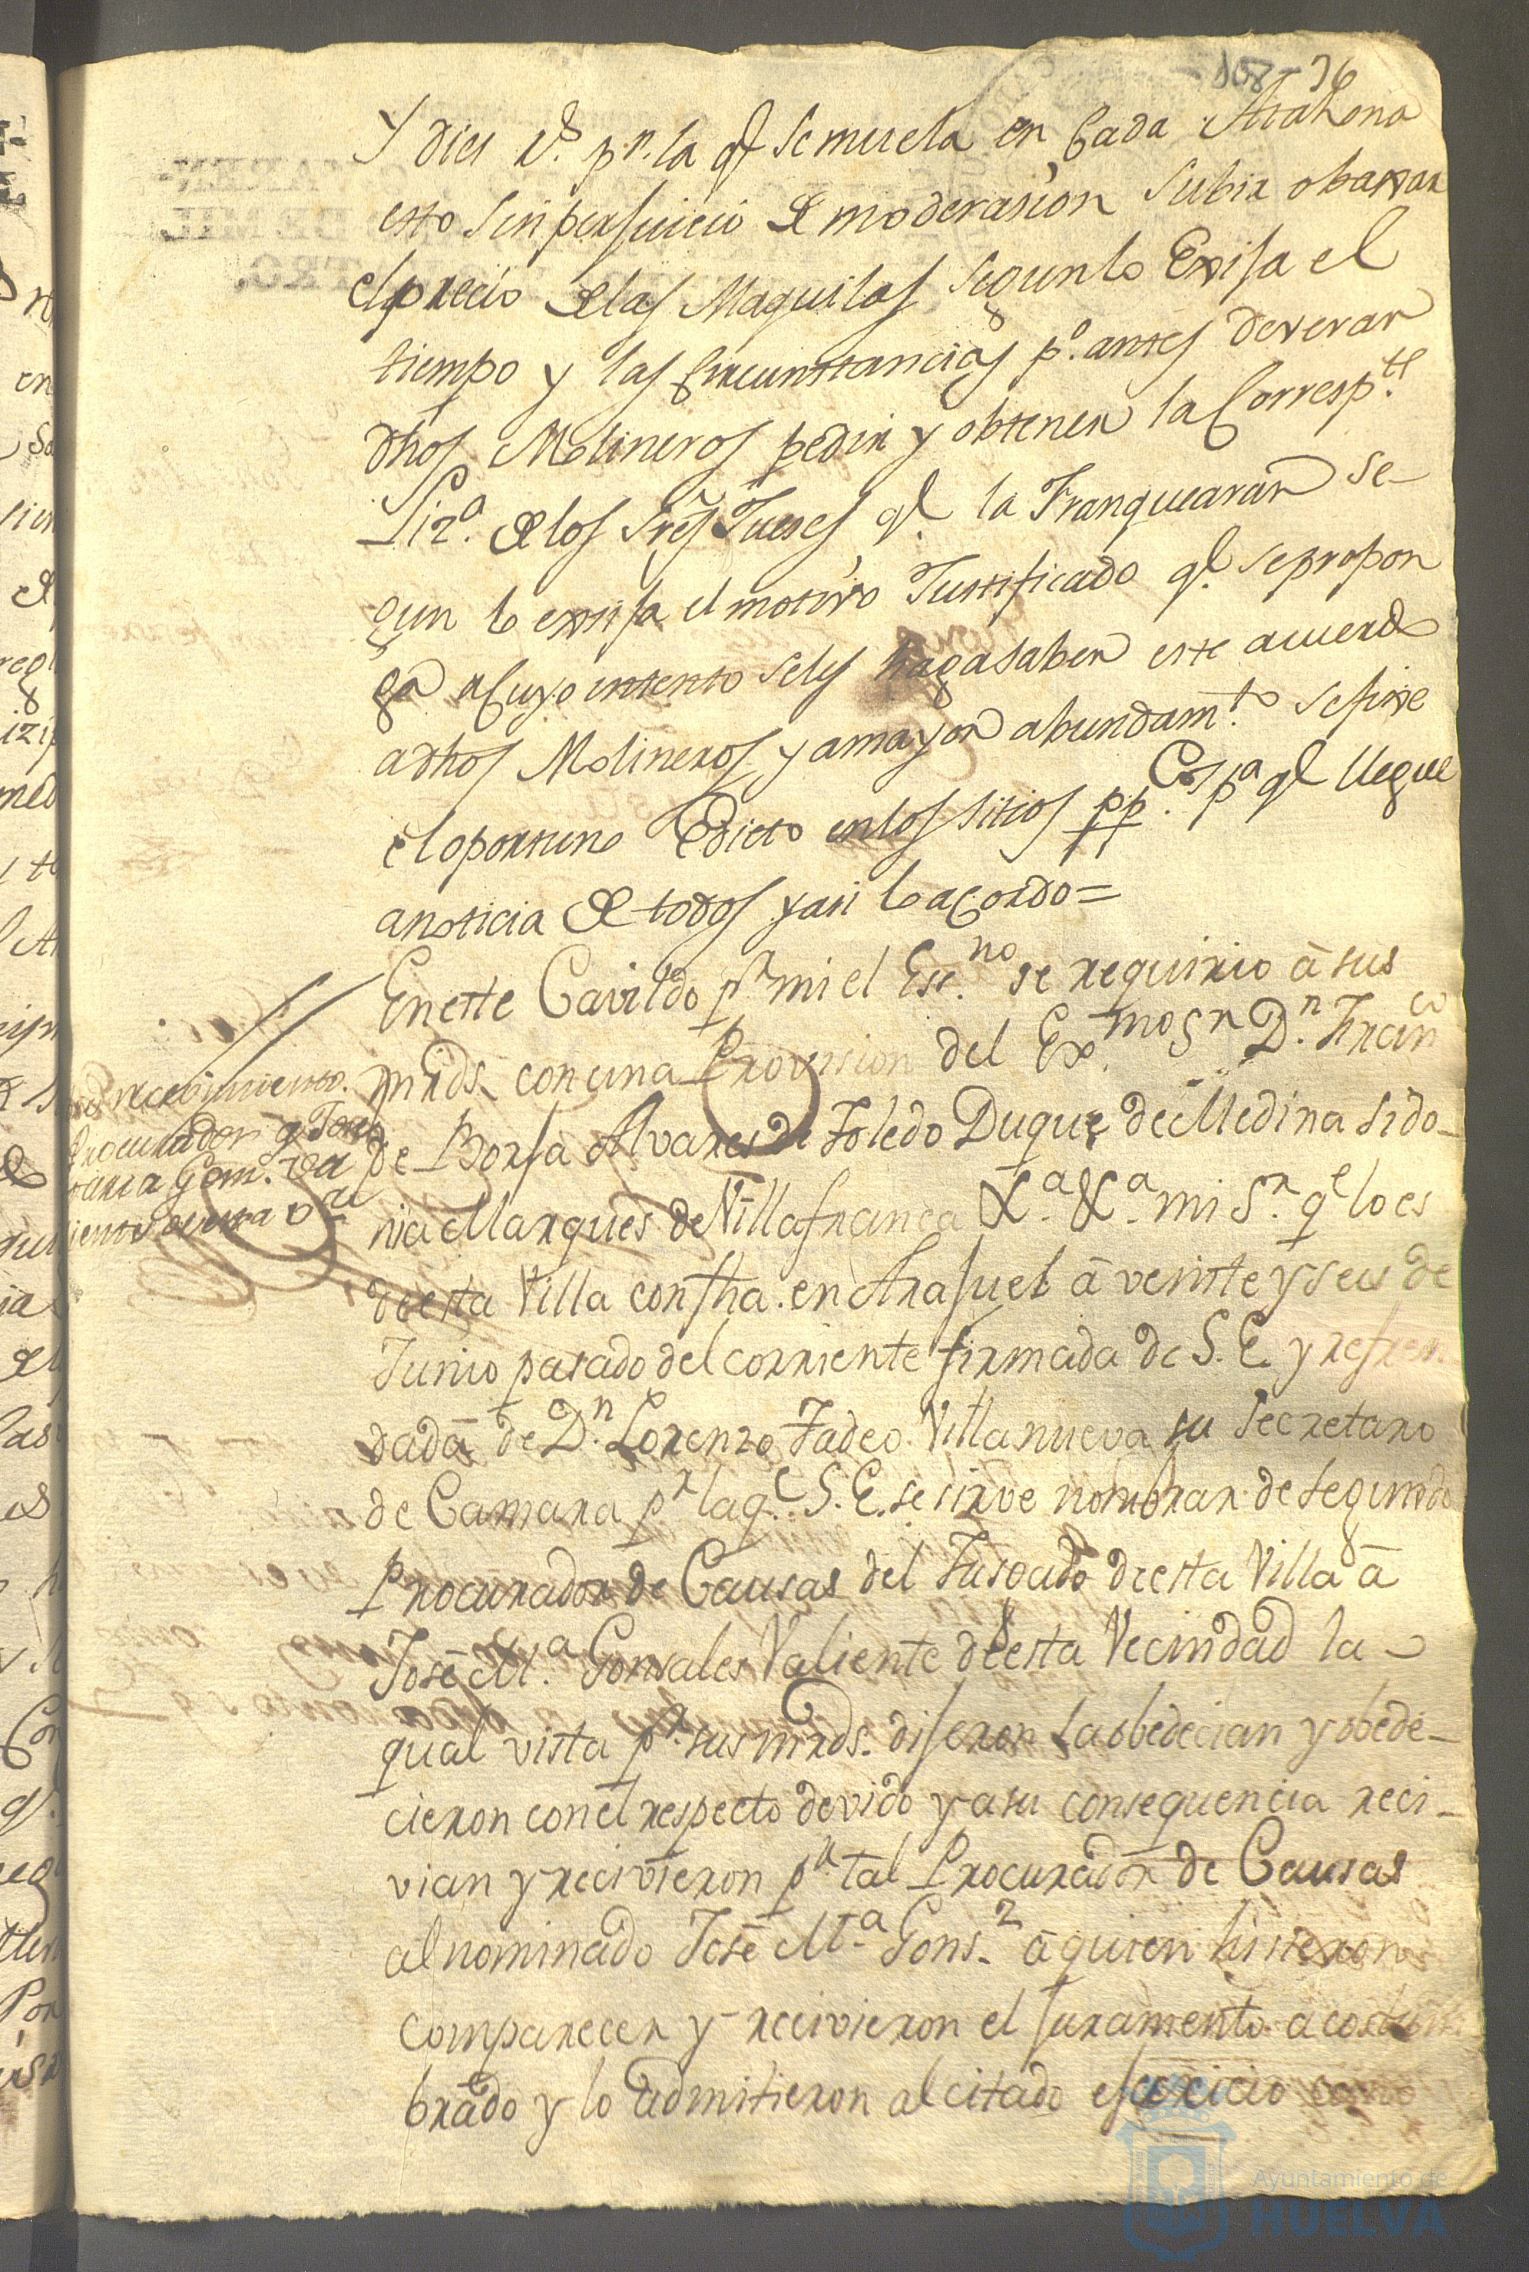 108 36
Y dies r.s p.r la q.l se muela en Cada Atahona
esto sin persuicio de moderasion subir o baxar
el precio de las Maquilas segun lo Exisa el
tiempo y las Circunstancias p.o antes deveran
dhos Molineros pedir y obtener la Corresp.te
Liz.a de los Sres Jueses q.e la Franquearan se-
gun lo exisa el motivo Justificado q.e se propon
ga a Cuyo intento se les haga saber este acuerdo
a dhos Molineros y a mayor abundam.to se fixe
el oportuno Edicto en los sitios pp.Cos p.a q.e llegue
a noticia de todos y asi lo acordo=
En este Cavildo p.r mi el Esc.no se requirio â sus
mrds. con una Provision del Ex.mo S.r D.n Fran.co
de Borja Alvares de Toledo Duque de Medina Sido-
nia Marques de Villafranca &.a &.a mi S.r q.e lo es
de esta Villa con fha. en Aransuel â veinte y seis de
Junio pasado del corriente firmada de S. E. y refren
dada de D.n Lorenzo Tadeo Villanueva su Secretario
de Camara p.r la q.e S. E. se sirve nombrar de segundo
Procurador de Causas del Jusgado de esta Villa â
José M.a Gonsales Valiente de esta Vecindad la
qual vista p.r sus mrds. diseron la obedecian y obede-
cieron con el respecto devido y a su consequencia reci-
vian y recivieron p.r tal Procurador de Causas
al nominado José M.a Gons.z â quien hisieron
comparecer y recivieron el juramento acostum
brado y lo admitieron al citado esercicio como
recevimiento.
Procurador â Jose
Maria Gom. Va
liente de esta v.a
Ayuntamiento de
HUELVA